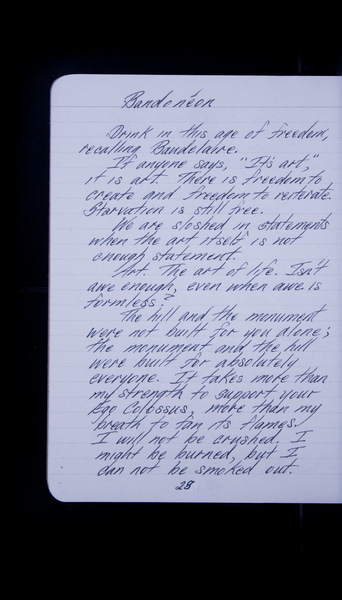 Bandonéon
Drink in this age of freedom,
recalling Baudelaire.
If anyone says, "It's art,"
it is art. There is freedom to
create and freedom to reiterate.
Starvation is still free.
We are sloshed in statements
when the art itself is not
enough statement.
Art. The art of life. Isn't
awe enough, even when awe is
formless?
The hill and the monument
were not built for you alone;
the monument and the hill
were built for absolutely
everyone. It takes more than
my strength to support your
Ego Colossus, more than my
breath to fan its flames.
I will not be crushed. I
might be burned, but I
can not be smoked out.
28